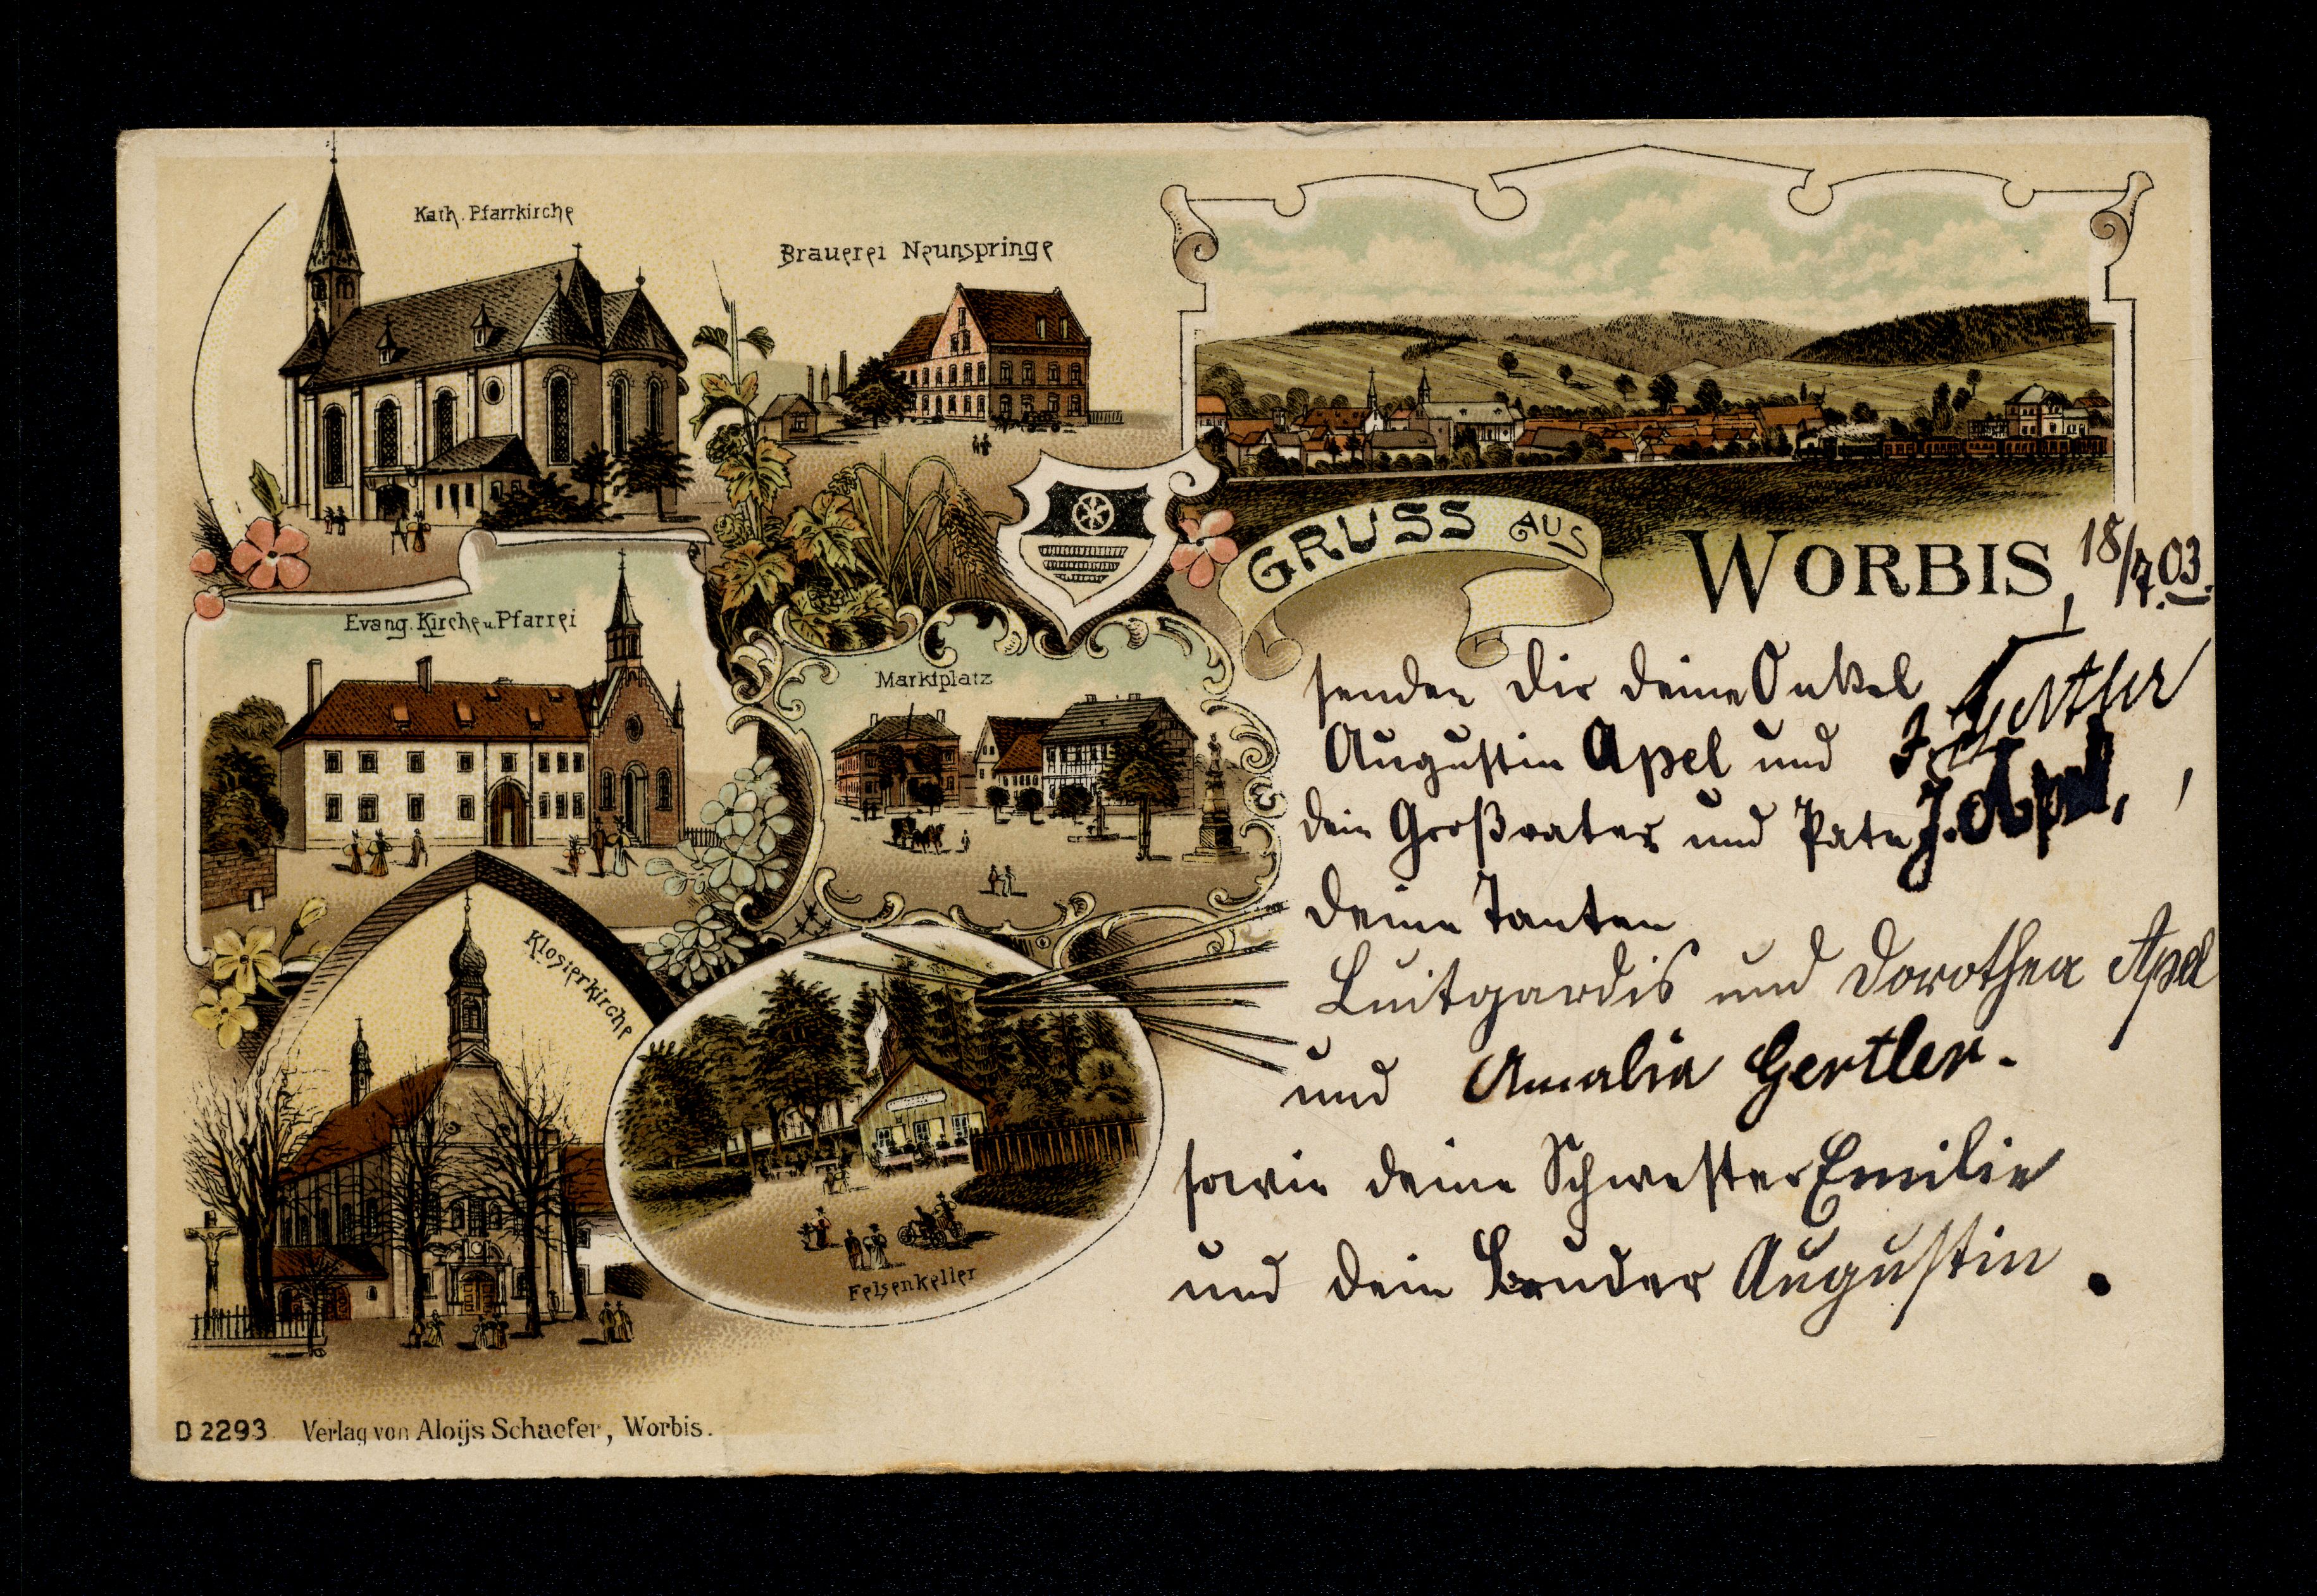 Kath. Pfarrkirche
Brauerei Neunspringe
GRUSS AUS
WORBIS, 18/7.03.
Evang. Kirche u. Pfarrei
Marktplatz
Klosterkirche
Felsenkeller
senden dir deine Onkel
Augustin Apel und J. Gertler
dein Großvater und Pate J. Apel,
deine Tanten
Luitgardis und Dorothea Apel
und Amalia Gertler.
sowie deine Schwester Emilie
und dein Bruder Augustin.
D 2293 Verlag von Aloijs Schaefer, Worbis.